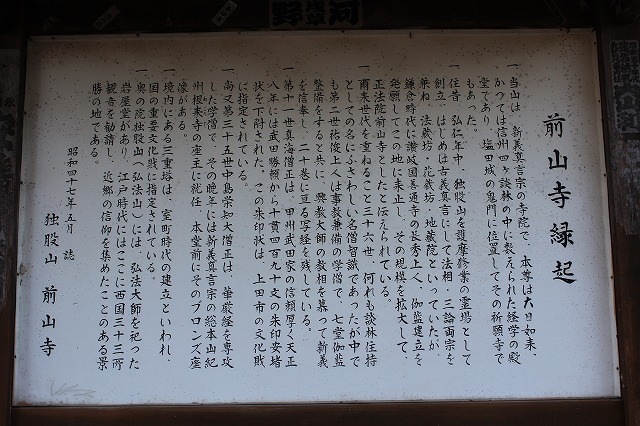 前山寺縁起
一 当山は、新義真言宗の寺院で、本尊は大日如来、
かつては信州四ヶ談林の中に数えられた経学の殿
堂であり、塩田城の鬼門に位置してその祈願寺で
もあった。
一 住昔 弘仁年中、独股山を護摩修業の霊場として
創立、はじめは古義真言にして法相、三論両宗を
兼ね、法蔵坊・花蔵坊・地蔵院といっていたが、
鎌倉時代に讃岐国善通寺の長秀上人、伽藍建立を
発願してこの地に来止し、その規模を拡大して、
正法院前山寺としたと伝えられている。
一 爾来年代を重ねること三十六世 何れも談林住持
としての名にふさわしい名僧智識であったが中で
も第二世祐俊上人は事教兼備の学僧で、七堂伽藍
整備をすると共に、興教大師の教相を慕って新義
を信奉し、二十巻に亘る写経を残している。
一 第十一世真海僧正は、甲州武田家の信頼厚く天正
八年には武田勝頼から十貫四百九十文の朱印安堵
状を下附された。この朱印状は、上田市の文化財
に指定されている。
一 尚又第三十五世中島崇如大僧正は、華厳経を専攻
した学僧で、その晩年には新義真言宗の総本山紀
州根来寺の座主に就任、本堂前にそのブロンズ座
像がある。
一 境内にある三重塔は、室町時代の建立といわれ、
国の重要文化財に指定されている。
一 奥の院独股山(弘法山)には、弘法大師を祀った
岩屋堂があり、江戸時代にはここに西国三十三所
観音を勧請し、近郷の信仰を集めたことのある景
勝の地である。
昭和四十七年五月 誌
独股山 前山寺